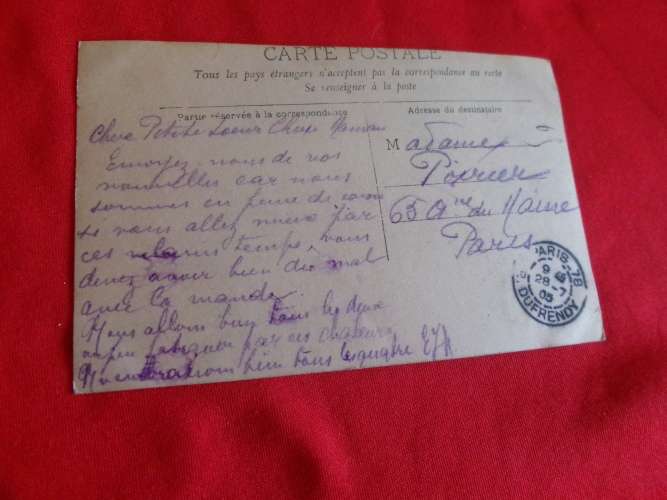 CARTE POSTALE
Tous les pays étrangers n'acceptent pas la correspondance au recto
Se renseigner à la poste
Partie réservée à la correspondance
Adresse du destinataire
Chere Petite Soeur Chere Maman
Envoyez nous de vos
nouvelles car nous
sommes en peine de
si vous allez mieux par
ces vilains temps, vous
devez avoir bien du mal
avec la
Nous allons tous les deux
un peu par ces chaleurs
bien tous les quatre
Madame
Poirier
65 Ave du Maine
Paris
PARIS 78
9
28 - 7
05
R. DUFRENOY